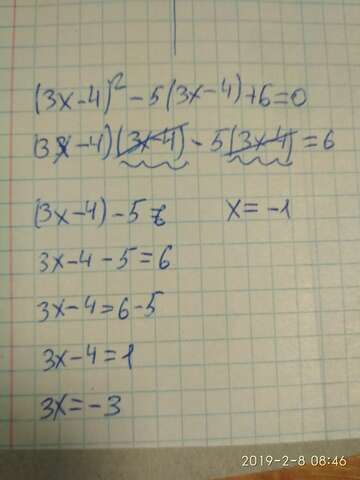 (3x-4)² - 5(3x-4)+6=0
(3x-4)(3x-4) - 5(3x-4) = 6
(3x-4)-5 6
x = -1
3x-4-5=6
3x-4=6-5
3x-4=1
3x=-3
2019-2-8 08:46